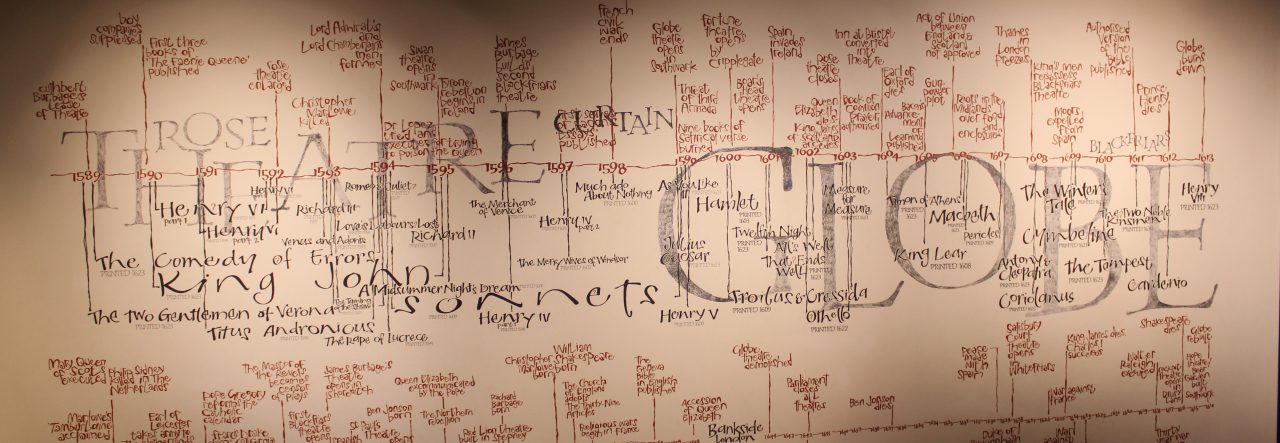 boy
companies
suppressed
First three
books of
'The Faerie Queene'
published
Lord Admiral's
and
Lord Chamberlain's
men
formed
rose
theatre
enlarged
Christopher
Marlowe
killed
Swan
theatre
opens
in
Southwark
Tyrone
rebellion
begins in
ireland
James
Burbage
builds
second
Blackfriars
theatre
French
civil
war
ends
Globe
theatre
opens
in
Southwark
Fortune
theatre
opens
by
Cripplegate
Spain
invades
Ireland
Threat
of third
Armada
Boar's
head
theatre
opens
Nine books of
satirical verse
burned
Inn at Bristol
converted
into
theatre
rose
theatre
closed
Queen
Elizabeth
dies. James
King
of Scotland
accedes
Act of Union
between
England &
Scotland
not approved
Earl of
Oxford
dies
Book of
common
Prayer
authorised
Bacon's
Advance-
ment of
Learning
published
Gun
powder
plot
Riots in the
Midlands
over food
and
enclosures
Thames
in
London
freezes
King's men
repossess
Blackfriars
theatre
Moors
expelled
from
Spain
Authorised
version
of the
Bible
published
Prince
Henry
dies
Globe
burns
down
Cuthbert
Burbage's
Lease
of Theatre
Dr Lopez
tried and
executed for trying
to poison the Queen
published
THEATRE
ROSE
CURTAIN
GLOBE
BLACKFRIARS
1589 1590 1591 1592 1593 1594 1595 1596 1597 1598 1599 1600 1601 1602 1603 1604 1605 1606 1607 1608 1609 1610 1611 1612 1613
Henry VI
part 1
Henry VI
part 2
Henry VI
Richard III
Venus and Adonis
Romeo & Juliet
Love's Labours Lost
Richard II
The Merchant
of Venice
Much ado
About Nothing
PRINTED 1600
Henry IV
part 2
The Merry Wives of Windsor
As You Like
Hamlet
PRINTED
1603
Julius
Caesar
PRINTED 1623
Twelfth Night
PRINTED
1623
All's Well
That Ends
Well
Measure
for
Measure
Timon of Athens
Macbeth
PRINTED 1623
Pericles
King Lear
PRINTED 1608
The Winter's
Tale
The Two Noble
Kinsmen
Cymbeline
Antony &
Cleopatra
The Tempest
Coriolanus
Cardenio
Henry
VIII
The Comedy of Errors
PRINTED 1623
King John
A Midsummer Night's Dream
Sonnets
PRINTED 1609
The Taming
of the Shrew
The Two Gentlemen of Verona
Titus Andronicus
The Rape of Lucrece
Henry IV
part 1
Henry V
Troilus & Cressida
PRINTED 1609
Othello
PRINTED 1622
Mary Queen
of Scots
executed
Philip Sidney
killed in the
Netherlands
Marlowe's
Tamburlaine
acclaimed
Earl of
Leicester
takes army to
Pope Gregory
reforms the
Catholic
calendar
Francis Drake
The Master of
the Revels
becomes
censor of
plays
First
Blackfriars
theatre
James Burbage's
theatre
opens in
Shoreditch
St Paul's
theatre
opened
Ben Jonson
born
Queen Elizabeth
excommunicated
by the Pope
The Northern
rebellion
Richard
Burbage
born
Red Lion theatre
built in Stepney
Christopher
Marlowe
born
William
Shakespeare
born
The
Church of
England
adopts
The Thirty-Nine
Articles
Religious wars
begin in France
The
Geneva
Bible
in English
published
Accession
of Queen
Elizabeth
Globe
theatre
demolished
Bankside
London
Parliament
closes
all
theatres
Ben Jonson
dies
Peace
made
with
Spain
Salisbury
Court
theatre
opens
in
Whitefriars
War against
France
King James dies.
Charles I
succeeds
Walter
Raleigh
executed
Shakespeare
dies
Globe
rebuilt